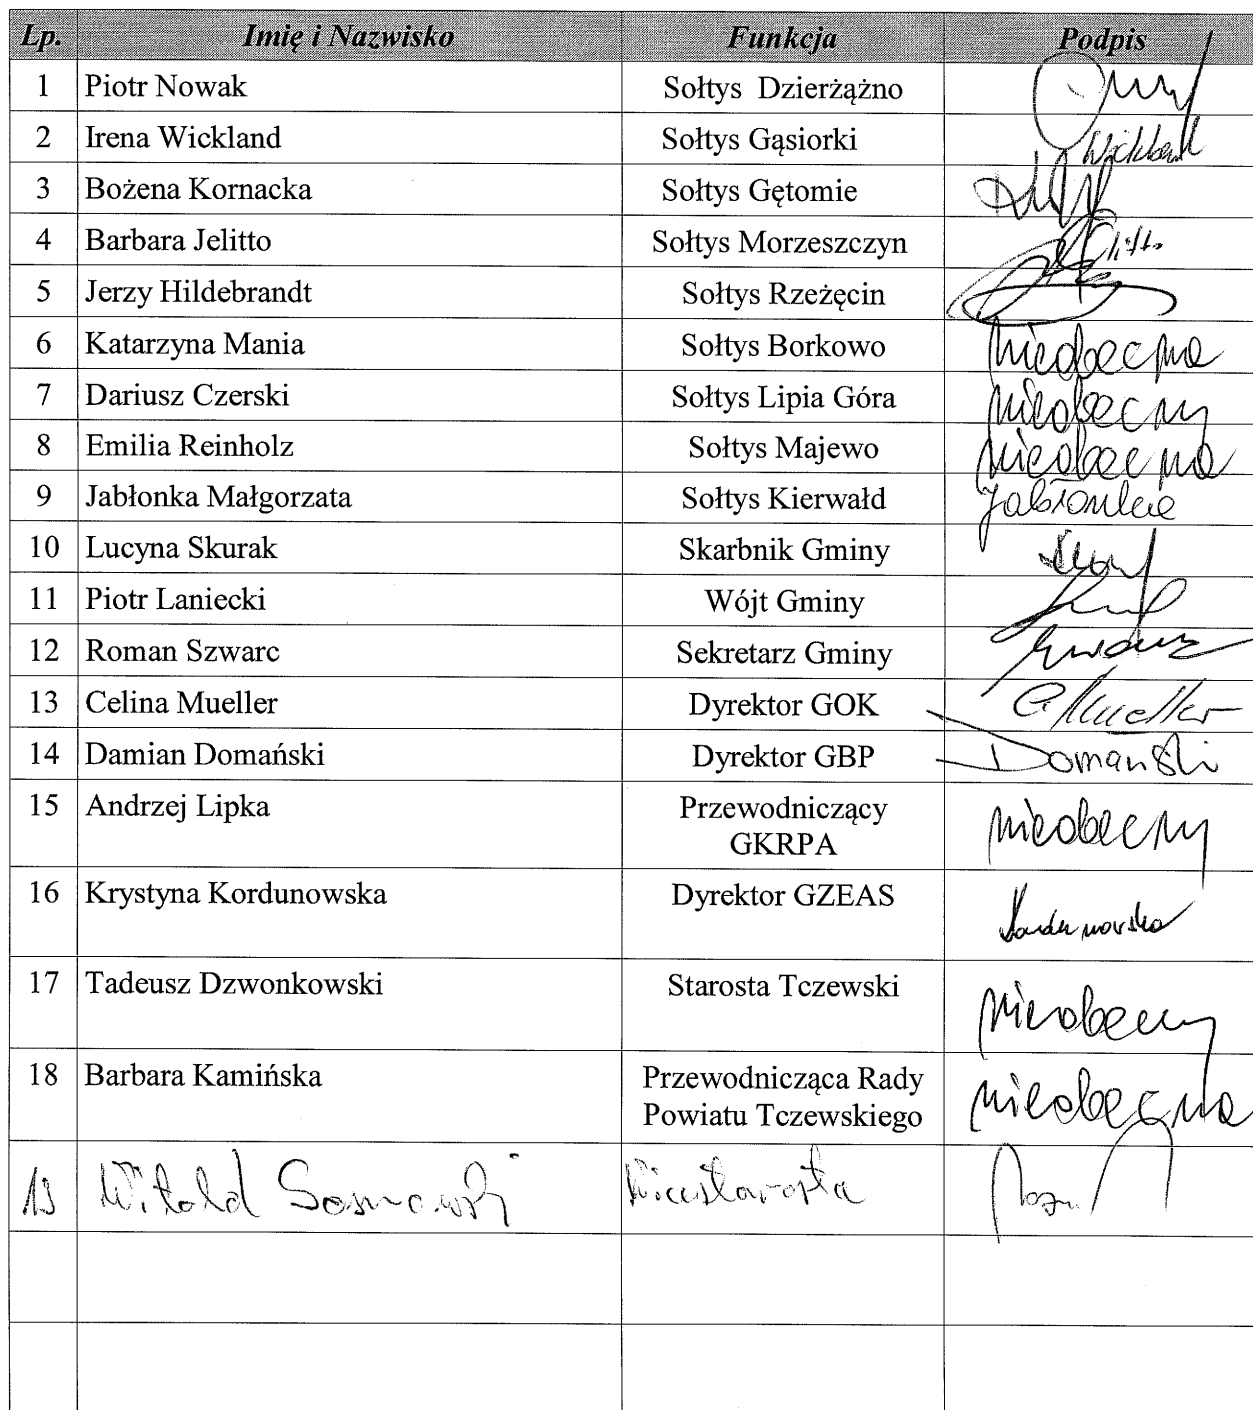 Lp. Imię i Nazwisko Funkcja Podpis
1 Piotr Nowak Sołtys Dzierżążno
2 Irena Wickland Sołtys Gąsiorki Wickland
3 Bożena Kornacka Sołtys Gętomie
4 Barbara Jelitto Sołtys Morzeszczyn
5 Jerzy Hildebrandt Sołtys Rzeżęcin
6 Katarzyna Mania Sołtys Borkowo nieobecna
7 Dariusz Czerski Sołtys Lipia Góra nieobecny
8 Emilia Reinholz Sołtys Majewo nieobecna
9 Jabłonka Małgorzata Sołtys Kierwałd Jabłonka
10 Lucyna Skurak Skarbnik Gminy
11 Piotr Laniecki Wójt Gminy
12 Roman Szwarc Sekretarz Gminy
13 Celina Mueller Dyrektor GOK C. Mueller
14 Damian Domański Dyrektor GBP Domański
15 Andrzej Lipka Przewodniczący nieobecny
GKRPA
16 Krystyna Kordunowska Dyrektor GZEAS Kordunowska
17 Tadeusz Dzwonkowski Starosta Tczewski nieobecny
18 Barbara Kamińska Przewodnicząca Rady nieobecna
Powiatu Tczewskiego
19 Witold Sosnowski Wicestarosta